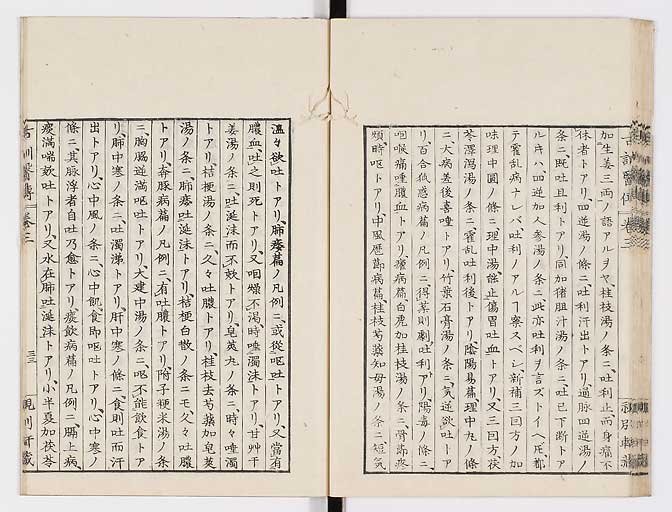 加生姜三両ノ語アルヲヤ、桂枝湯ノ条ニ、吐利止而身痛不
休者トアリ、四逆湯ノ條ニ、吐利汗出トアリ、通脉四逆湯ノ
条ニ、既吐且利トアリ、同加猪胆汁湯ノ条ニ、吐已下断トア
ルキハ四逆加人参湯ノ条ニ、此亦吐利ヲ言ズトイヘ𪜈、都
テ霍乱病ナレバ吐利ノアルヿ察スベシ、新補三回方ノ加
味理中圓ノ條ニ、理中湯、能止傷胃吐血トアリ、又三回方茯
苓澤瀉湯ノ条ニ、霍乱吐利後トアリ、陰陽易篇、理中丸ノ條
ニ、大病差後喜唾トアリ、竹葉石膏湯ノ条ニ、気逆欲吐トア
リ、百合狐惑病篇ノ凡例ニ、得薬則劇吐利アリ、陽毒ノ條ニ、
咽喉痛唾膿血トアリ、瘧病篇白虎加桂枝湯ノ条ニ、骨節疼
煩時呕トアリ、中風歴節病篇、桂枝芍薬知母湯ノ条ニ、短気
温々欲吐トアリ、肺痿篇ノ凡例ニ、或従呕吐トアリ、又當有
膿血、吐之則死トアリ、又咽燥不渇、時唾濁沫トアリ、甘艸干
姜湯ノ条ニ、吐涎沫而不欬トアリ、皂莢丸ノ条ニ、時々唾濁
トアリ、桔梗湯ノ条ニ、久々吐膿トアリ、桂枝去芍薬加皂莢
湯ノ条ニ、肺痿吐涎沫トアリ、桔梗白散ノ条ニモ久々吐膿
トアリ、奔豚病篇ノ凡例ニ、有吐膿トアリ、附子粳米湯ノ条
ニ、胸脇逆満呕吐トアリ、大建中湯ノ条ニ、呕不能飲食トア
リ、肺中寒ノ条ニ、吐濁涕トアリ、肝中寒ノ條ニ、食則吐而汗
出トアリ、心中風ノ条ニ、心中飢、食即呕吐トアリ、心中寒ノ
條ニ、其脉浮者自吐乃愈トアリ、痰飲病篇ノ凡例ニ、膈上病、
痰満喘欬吐トアリ、又水在肺吐涎沫トアリ、小半夏加茯苓